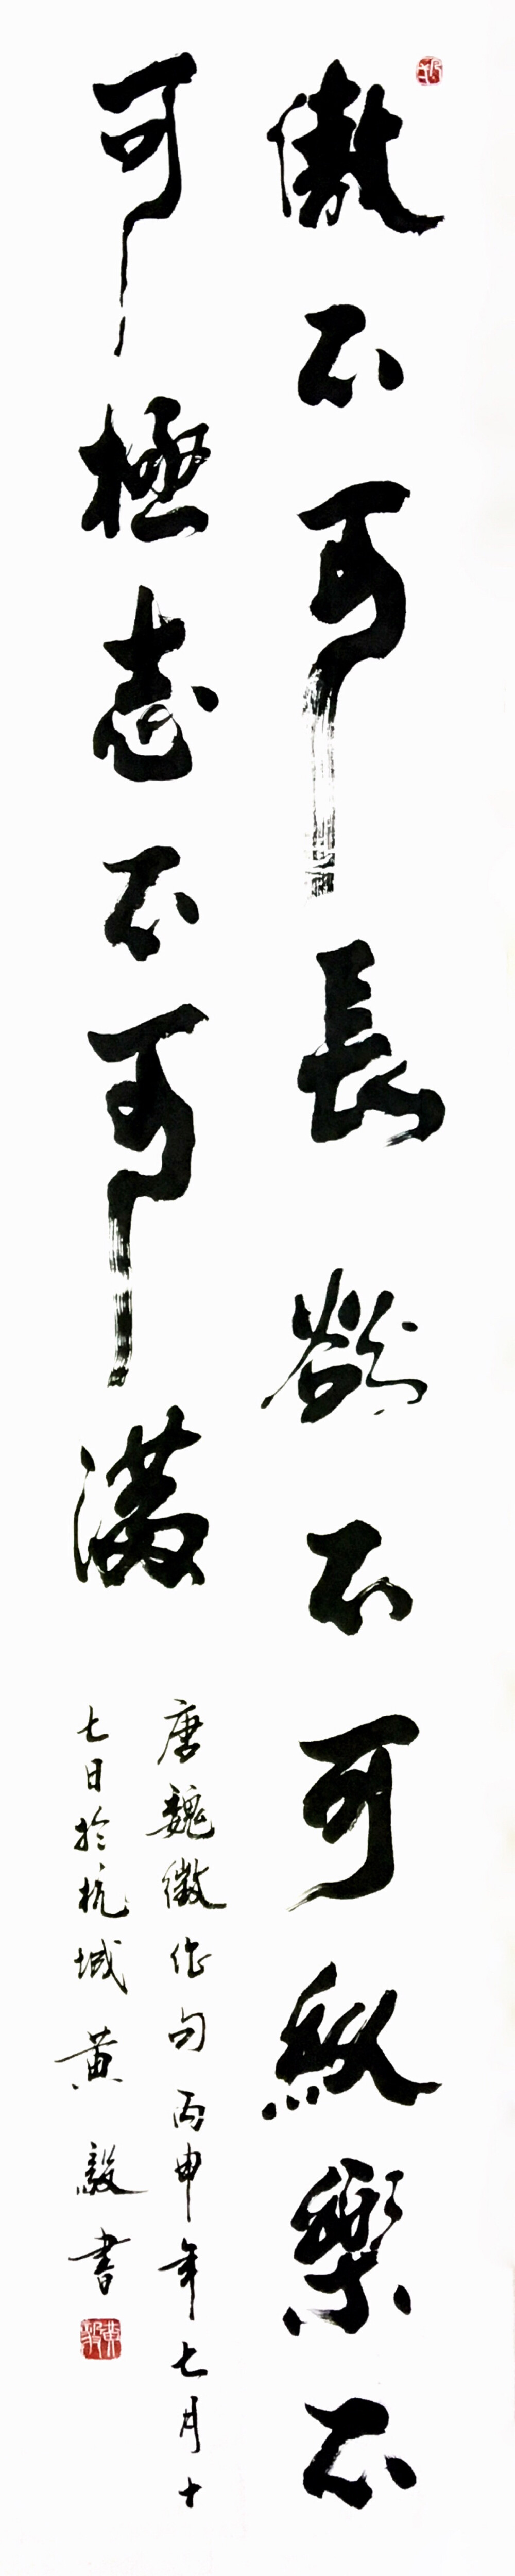 傲不可長欲不可縱樂不
可極志不可滿
唐魏徵作句丙申年七月十
七日於杭城黄毅書
黄毅